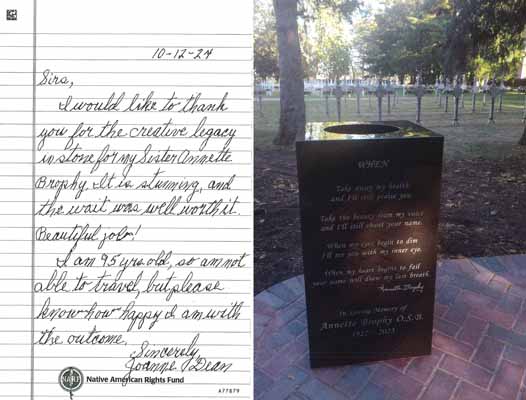 10-12-24
Sirs,
I would like to thank
you for the creative legacy
in stone for my Sister Annette
Brophy. It is stunning, and
the wait was well worth it.
Beautiful job!
I am 95 yrs. old, so am not
able to travel, but please
know how happy I am with
the outcome.
Sincerely
Joanne Dean
NARF
Native American Rights Fund
A77879
WHEN
Take away my health
and I'll still praise you.
Take the beauty from my voice
and I'll still shout your name.
When my eyes begin to dim
I'll see you with my inner eye.
When my heart begins to fail
your name will draw my last breath.
Annette Brophy
In Loving Memory of
Annette Brophy O.S.B.